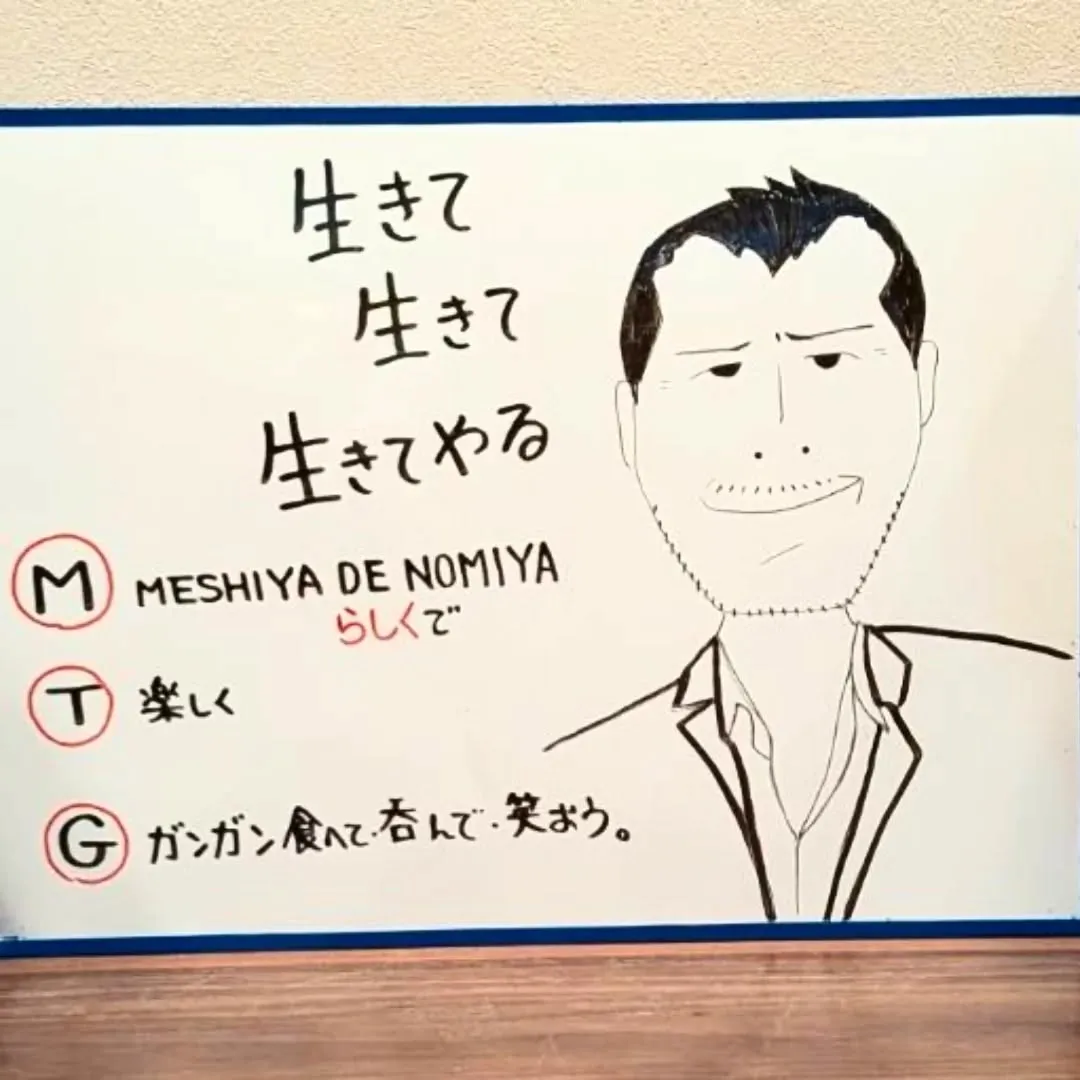 生きて
生きて
生きてやる
M MESHIYA DE NOMIYA
らしくで
T 楽しく
G ガンガン食べて・呑んで・笑おう。